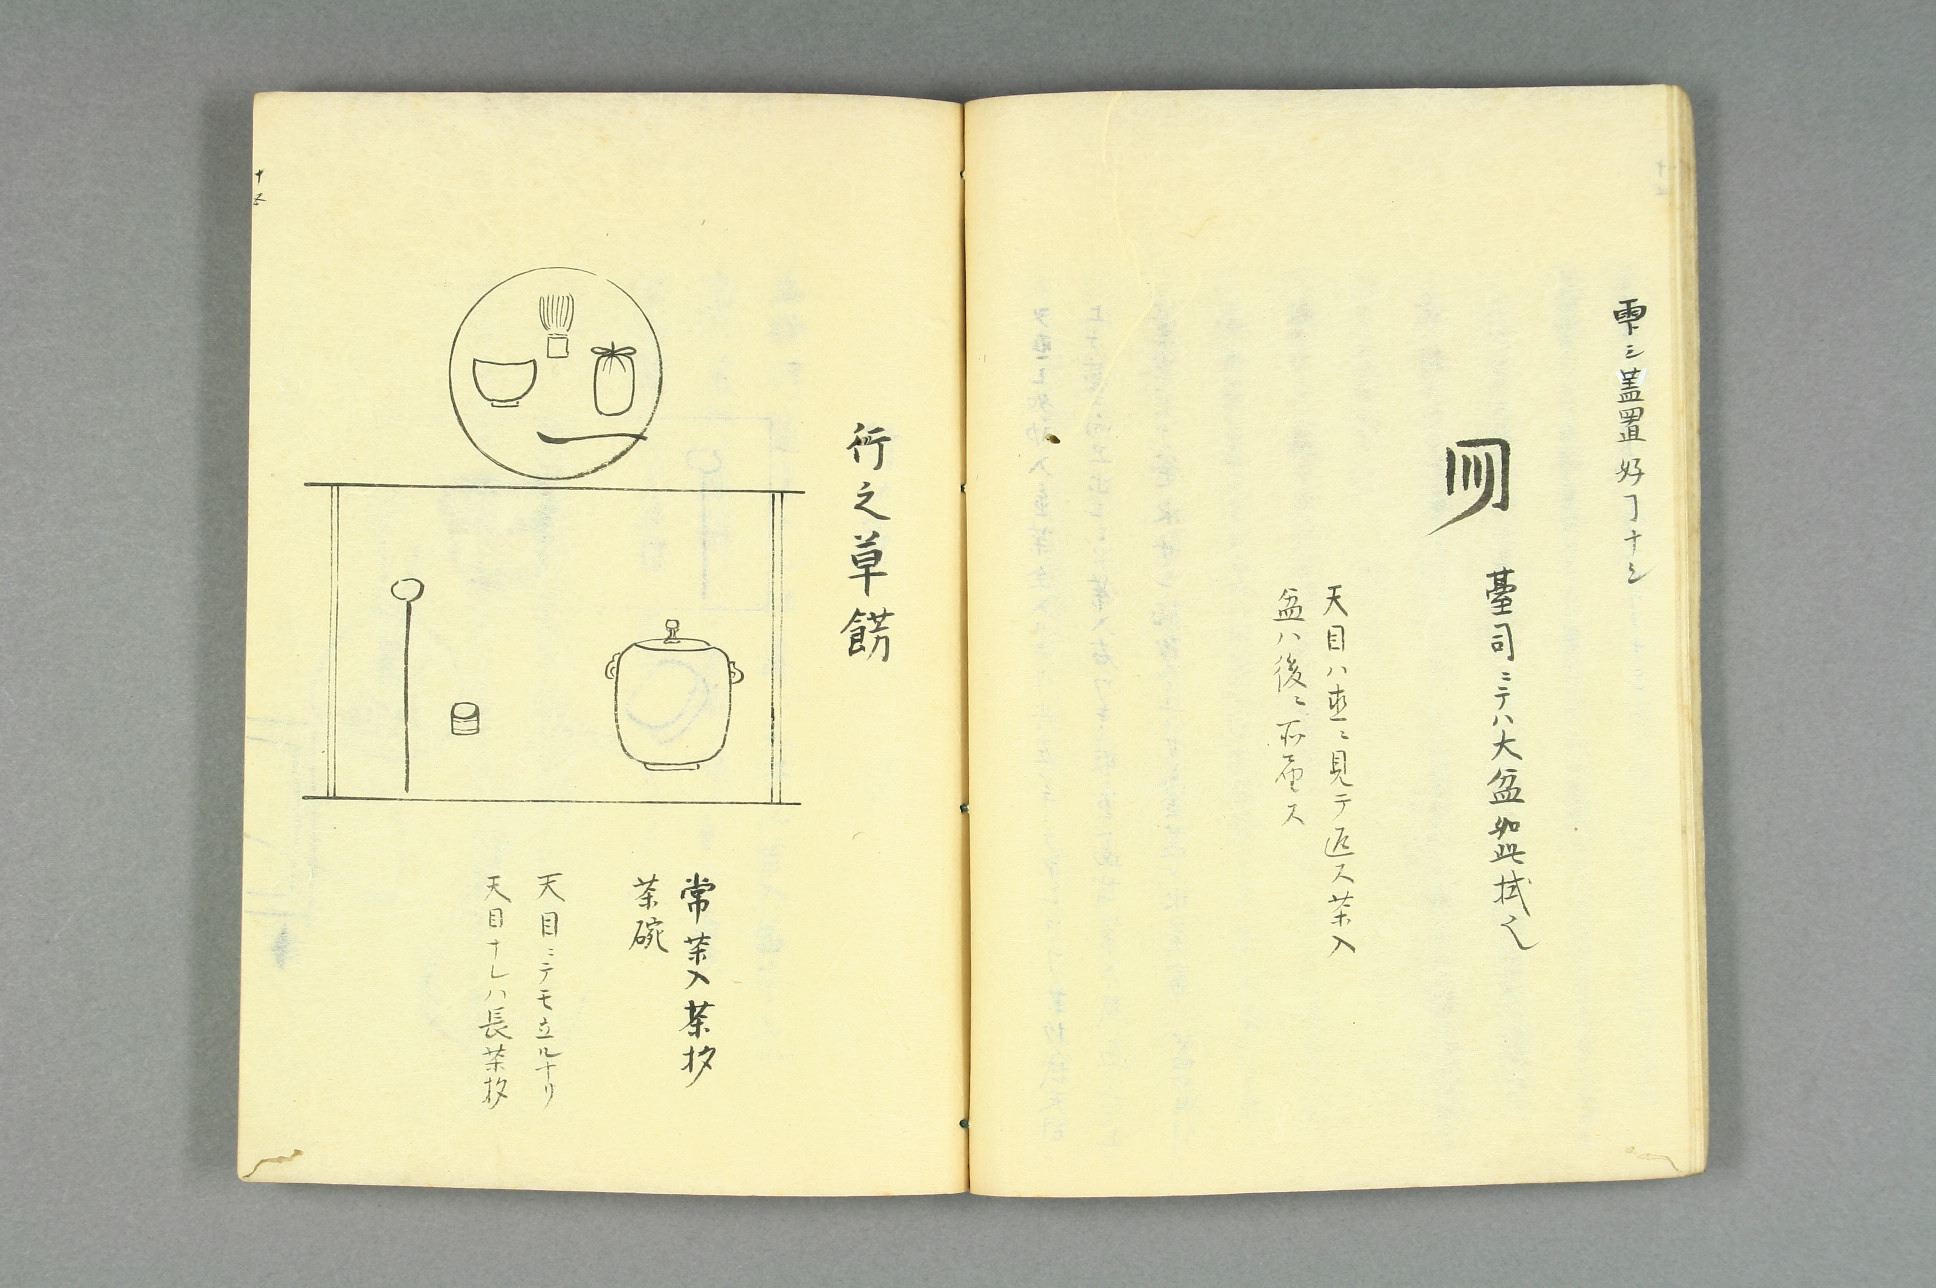 雫シ蓋置好ヿナシ
臺司ニテハ大盆如此拭之
天目ハ直ニ見テ返ス茶入
盆ハ後ニ所望ス
行之草餝
常茶入茶杓
茶碗
天目ニテモ立ルナリ
天目ナレハ長茶杓